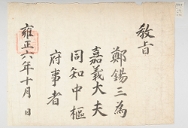 教旨
鄭錫三為
嘉義大夫
同知中樞
府事者
雍正六年十月 日